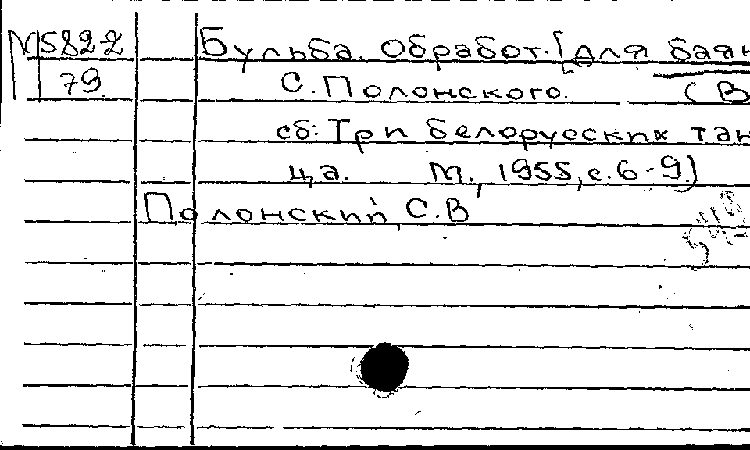 М582-2
79
Бульба. Обработ. [для баян
С. Полонского. (В
сб: Три белорусских тан
ца. М., 1955, с. 6-9)
Полонский, С.В